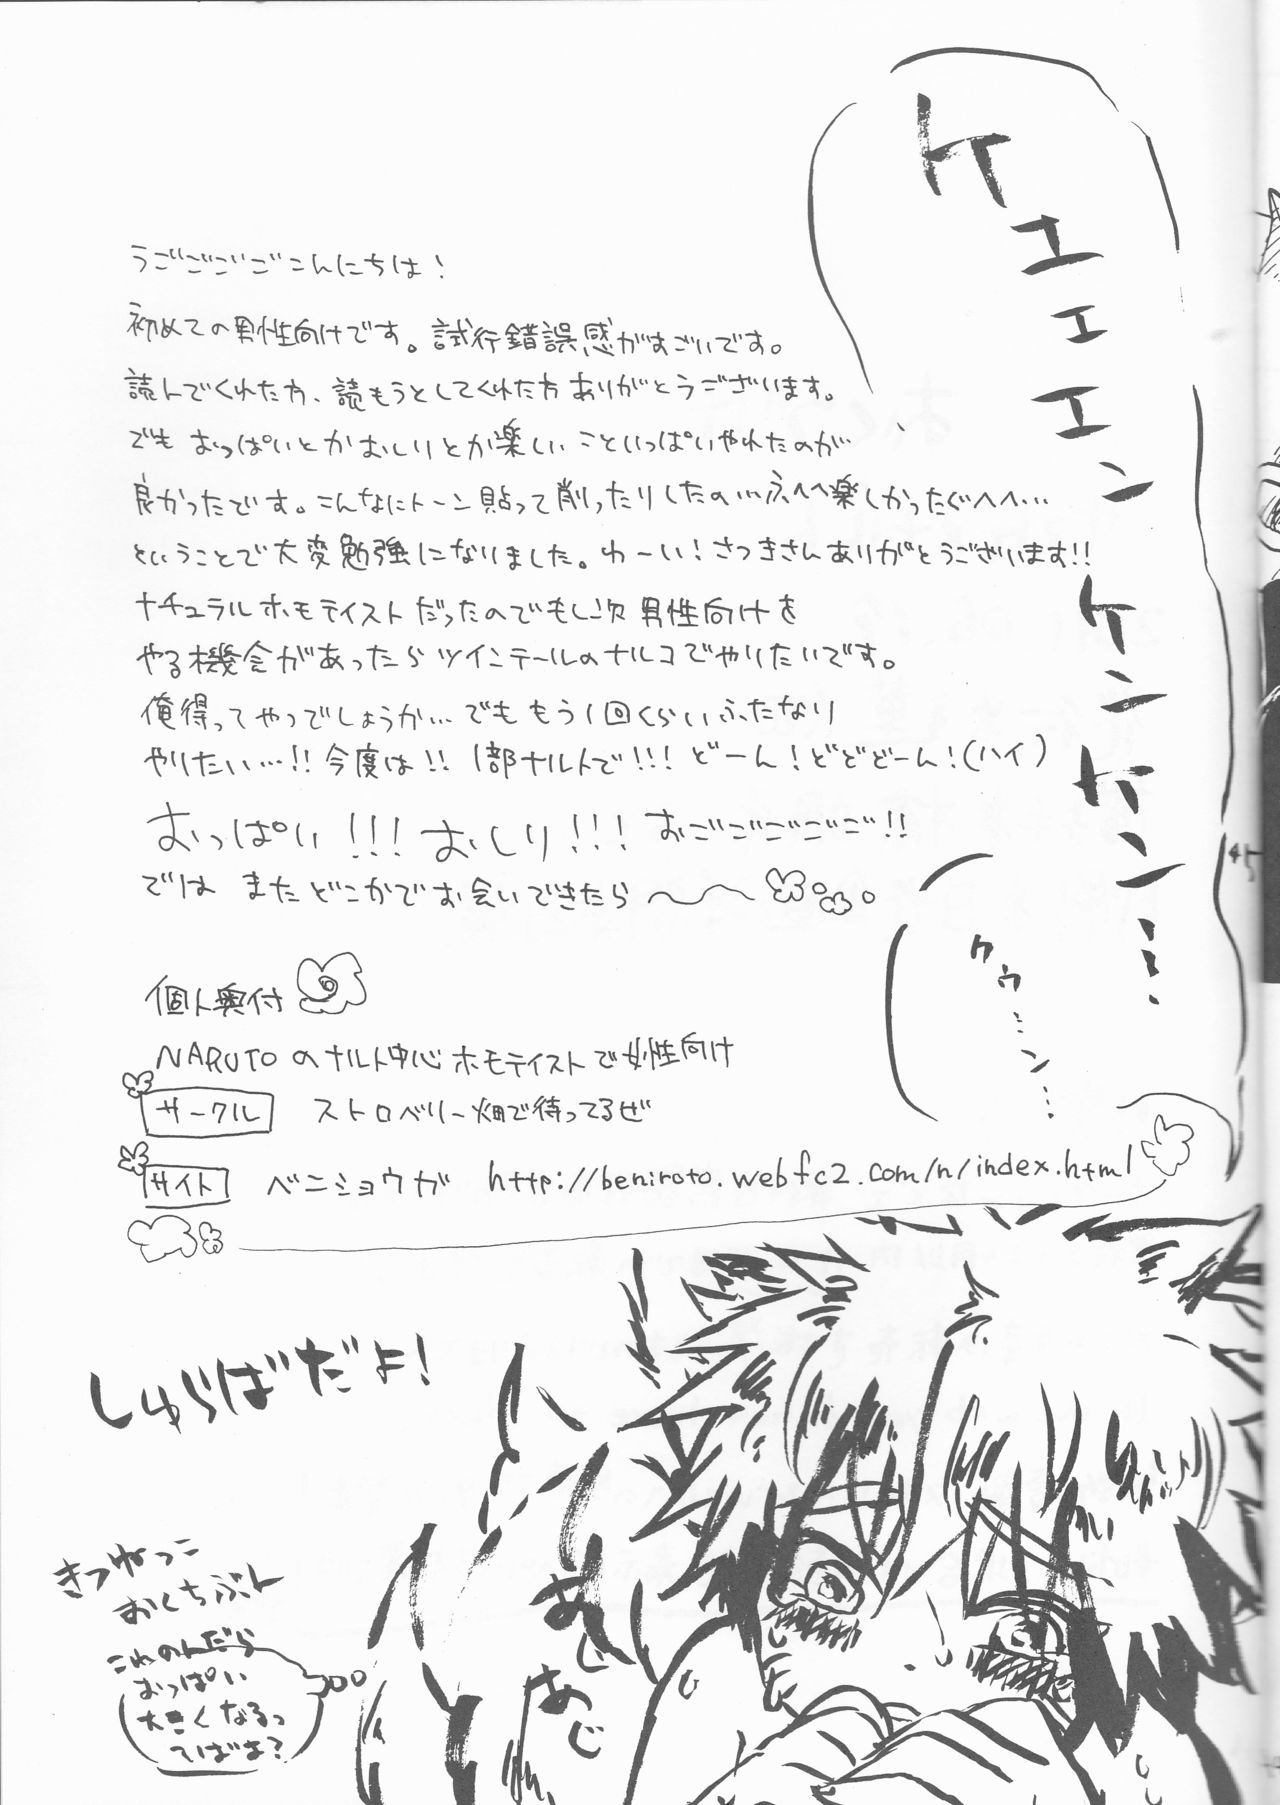 ケエエエンケンケン…
クウ…ン…
うごごごごこんにちは!
初めての男性向けです。試行錯誤感がすごいです。
読んでくれた方、読もうとしてくれた方ありがとうございます。
でも おっぱいとかおしりとか楽しいこといっぱいやれたのが
良かったです。こんなにトーン貼って削ったりしたの…ふへへ楽しかったぐへへ…
ということで大変勉強になりました。わーい!さつきさんありがとうございます!!
ナチュラルホモテイストだったのでもし次男性向けを
やる機会があったらツインテールのナルコでやりたいです。
俺得ってやつでしょうか…でももう1回くらいふたなり
やりたい…!!今度は!!1部ナルトで!!!どーん!どどどーん!(ハイ)
おっぱい!!!おしり!!!おごごごごご!!
では またどこかでお会いできたら〜〜
個人奥付
NARUTOのナルト中心ホモテイストで女性向け
サークル ストロベリー畑で待ってるぜ
サイト ベニショウガ http://beniroto.web.fc2.com/n/index.html
しゅらばだよ!
きつねっこ
おくちぶん
これのんだら
おっぱい
大きくなるっ
てばよ?
あじ
あじ
45